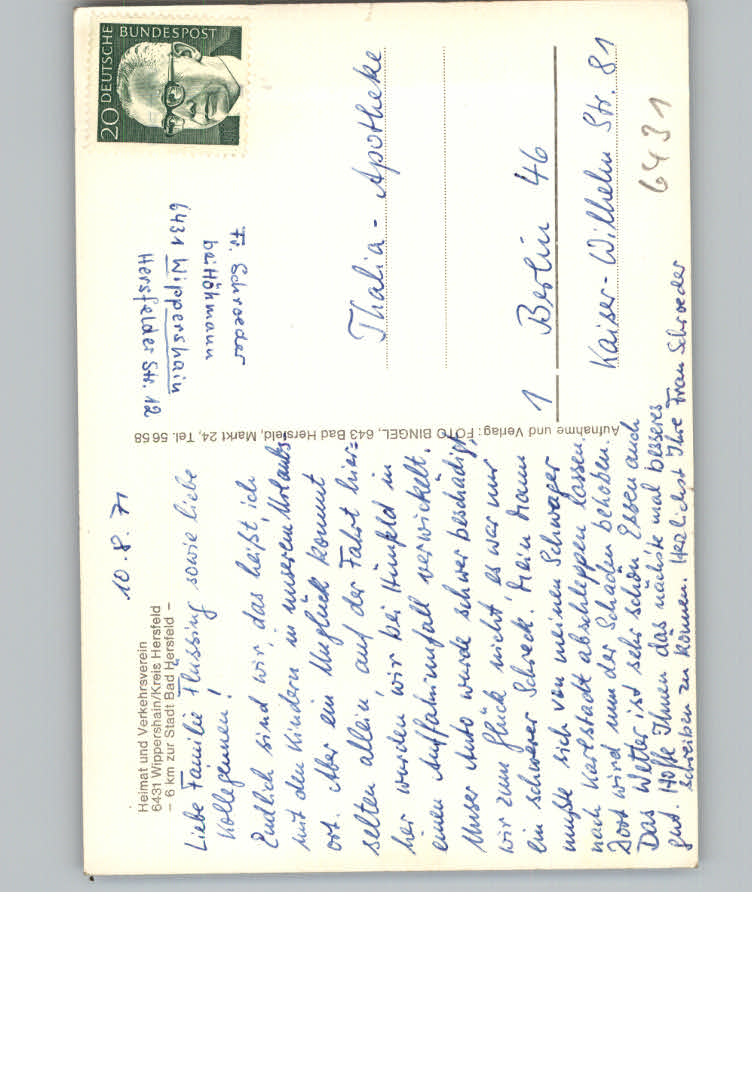 Heimat und Verkehrsverein
6431 Wippershain/Kreis Hersfeld
– 6 km zur Stadt Bad Hersfeld –
10.8.71
Liebe Familie Flüssing sowie liebe
Kolleginnen!
Endlich sind wir, das heißt ich
mit den Kindern in unserem Urlaubs
ort. Aber ein Unglück kommt
selten allein, auf der Fahrt hier=
her wurden wir bei Hünfeld in
einen Auffahrunfall verwickelt.
Unser Auto wurde schwer beschädigt,
wir zum Glück nicht, es war nur
ein schwerer Schreck. Mein Mann
mußte sich von meinen Schwager
nach Karlstadt abschleppen lassen.
Dort wird nun der Schaden behoben.
Das Wetter ist sehr schön Essen auch
gut. Hoffe Ihnen das nächste mal besseres
schreiben zu können. Herzlichst Ihre Frau Schroeder
Aufnahme und Verlag: FOTO BINGEL, 643 Bad Hersfeld, Markt 24, Tel. 56 58
20 DEUTSCHE BUNDESPOST
Fr. Schroeder
bei Höhmann
6431 Wippershain
Hersfelder Str. 12
Thalia-Apotheke
1 Berlin 46
Kaiser-Wilhelm Str. 81
6431